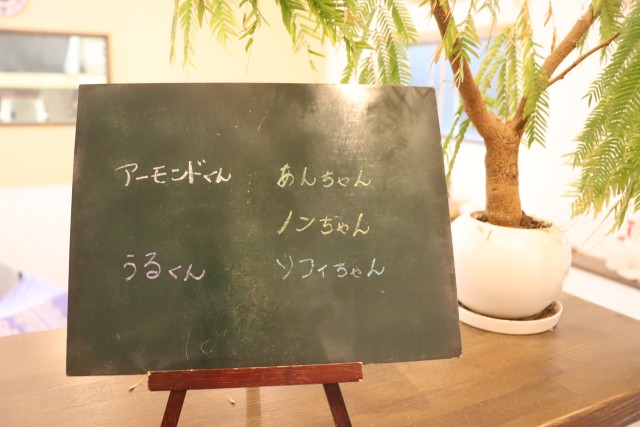 アーモンドくん
うるくん
あんちゃん
ノンちゃん
ソフィちゃん